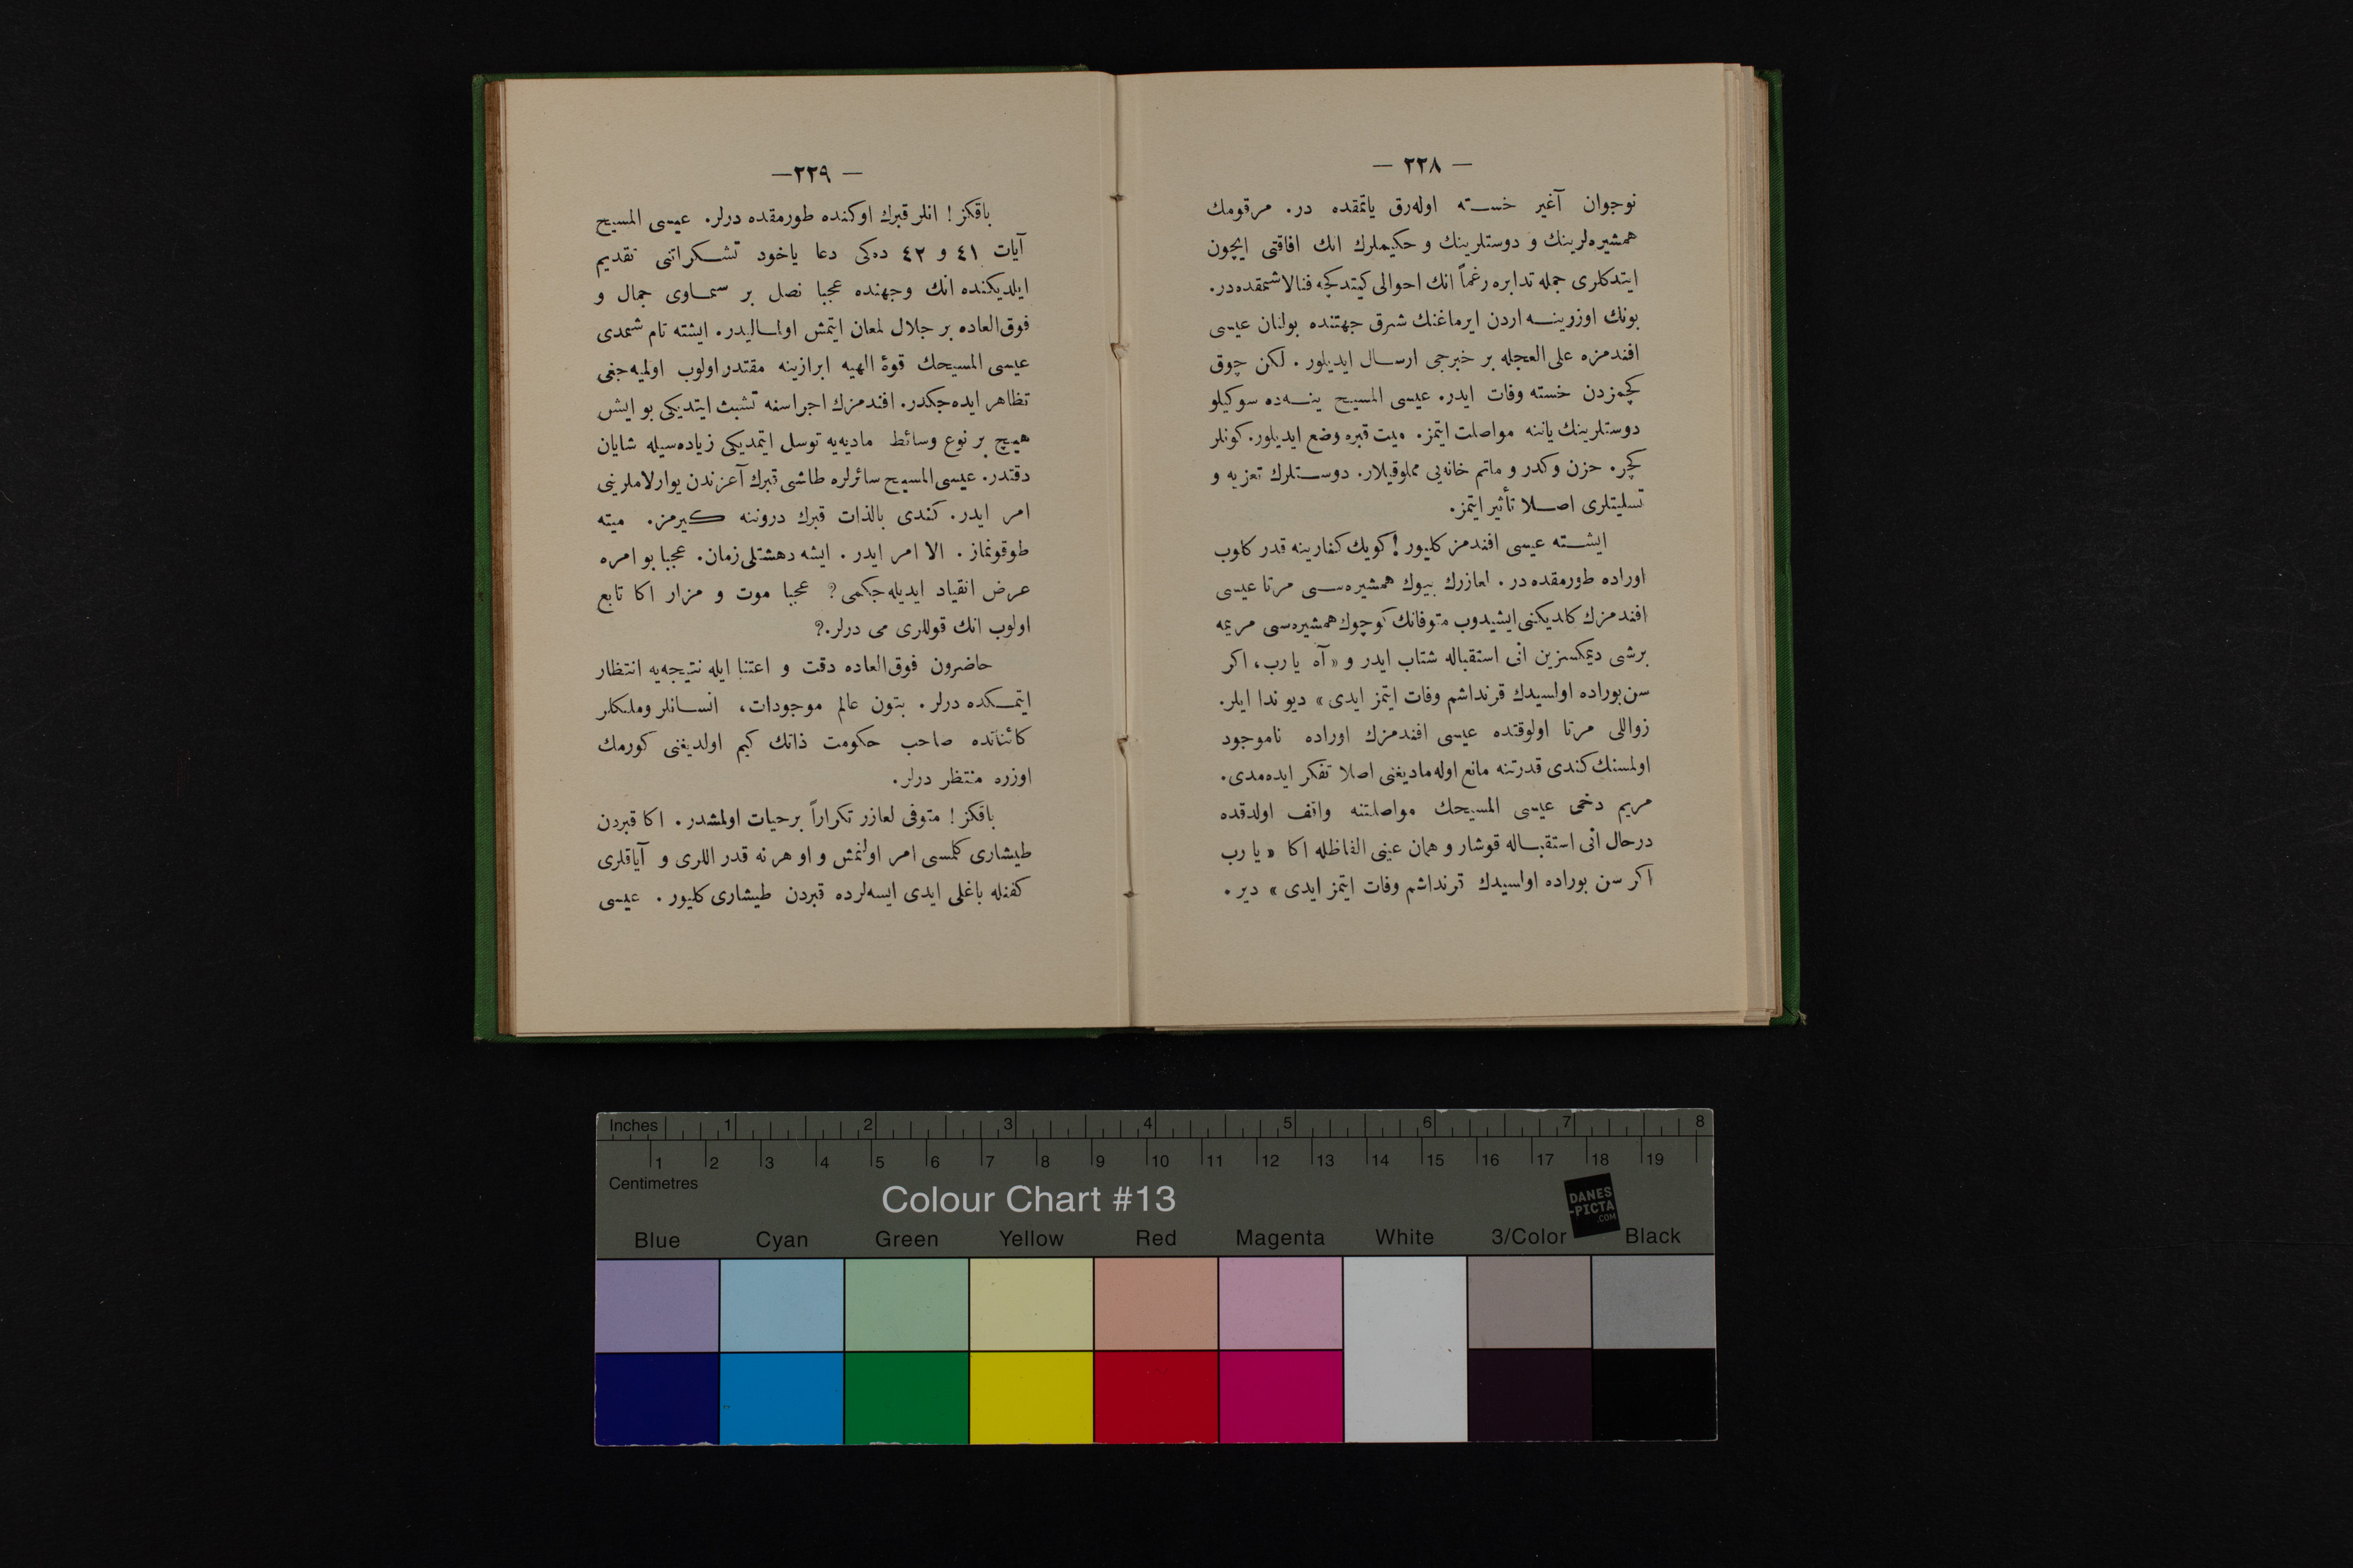 — ٢٢٨ —
نوجوان آغیر خسته اوله‌رق یاتمقده در. مرقومك
همشیره‌لرینك و دوستلرینك و حكیملرك انك افاقتی ایچون
ایتدكلری جمله تدابره رغماً انك احوالی كیتدكجه فنالاشمقده‌در.
بونك اوزرینه اردن ایرماغنك شرق جهتنده بولنان عیسی
افندمزه علی‌العجله بر خبرجی ارسال ایدیلور . لكن چوق
كچمزدن خسته وفات ایدر. عیسی المسیح ینه‌ده سوكیلو
دوستلرینك یاننه مواصلت ایتمز. میت قبره وضع ایدیلور. كونلر
كچر. حزن و كدر و ماتم خانه‌یی مملوقیلار. دوستلرك تعزیه و
تسلیتلری اصلا تأثیر ایتمز.
ایشته عیسی افندمز كلیور ! كویك كنارینه قدر كلوب
اوراده طورمقده در . لعازرك بیوك همشیره‌سی مرتا عیسی
افندمزك كلدیكنی ایشیدوب متوفانك كوچوك همشیره‌سی مریمه
برشی دیمكسزین انی استقباله شتاب ایدر و « آه یا رب، اكر
سن بوراده اولسیدك قرنداشم وفات ایتمز ایدی » دیو ندا ایلر.
زواللی مرتا اولوقتده عیسی افندمزك اوراده ناموجود
اولمسنك كندی قدرتنه مانع اوله‌مادیغنی اصلا تفكر ایده‌مدی.
مریم دخی عیسی المسیحك مواصلتنه واقف اولدقده
درحال انی استقباله قوشار و همان عینی الفاظله اكا « یا رب
اكر سن بوراده اولسیدك قرنداشم وفات ایتمز ایدی » دیر .
— ٢٢٩—
باقكز ! انلر قبرك اوكنده طورمقده درلر. عیسی المسیح
آیات ٤١ و ٤٢ ده‌كی دعا یاخود تشكراتنی تقدیم
ایلدیكنده انك وجهنده عجبا نصل بر سماوی جمال و
فوق‌العاده بر جلال لمعان ایتمش اولمالیدر. ایشته تام شمدی
عیسی المسیحك قوهٔ الهیه ابرازینه مقتدر اولوب اولمیه‌جغی
تظاهر ایده‌جكدر. افندمزك اجراسنه تشبث ایتدیكی بو ایش
هیچ بر نوع وسائط مادیه‌یه توسل ایتمدیكی زیاده‌سیله شایان
دقتدر. عیسی المسیح سائرلره طاشی قبرك آغزندن یوارلاملرینی
امر ایدر. كندی بالذات قبرك دروننه كیرمز. میته
طوقونماز . الا امر ایدر . ایشه دهشتلی زمان. عجبا بو امره
عرض انقیاد ایدیله‌جكمی؟ عجبا موت و مزار اكا تابع
اولوب انك قوللری می درلر.؟
حاضرون فوق‌العاده دقت و اعتنا ایله نتیجه‌یه انتظار
ایتمكده درلر . بتون عالم موجودات، انسانلر وملكلر
كائناتده صاحب حكومت ذاتك كیم اولدیغنی كورمك
اوزره منتظر درلر.
باقكز ! متوفی لعازر تكراراً برحیات اولمشدر. اكا قبردن
طیشاری كلمسی امر اولنمش و او هر نه قدر اللری و آیاقلری
كفنله باغلی ایدی ایسه‌لرده قبردن طیشاری كلیور . عیسی
Inches 1 2 3 4 5 6 7 8
1 2 3 4 5 6 7 8 9 10 11 12 13 14 15 16 17 18 19
Centimetres
Colour Chart #13
DANES
-PICTA
.COM
Blue Cyan Green Yellow Red Magenta White 3/Color Black